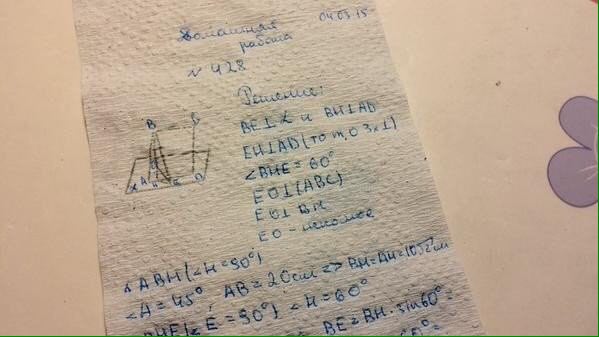 Домашняя 04.03.15
работа
№ 428
Решение:
BE⊥α и BH⊥AD
EH⊥AD (по т. о 3х⊥)
∠BHE = 60°
EO⊥(ABC)
EO⊥BH
EO - искомое
B C
α A H E D
△ABH (∠H=90°)
∠A = 45° AB = 20см => BH=AH=10√2см
BHE (∠E = 90°) ∠H = 60°
BE = BH · sin60° =